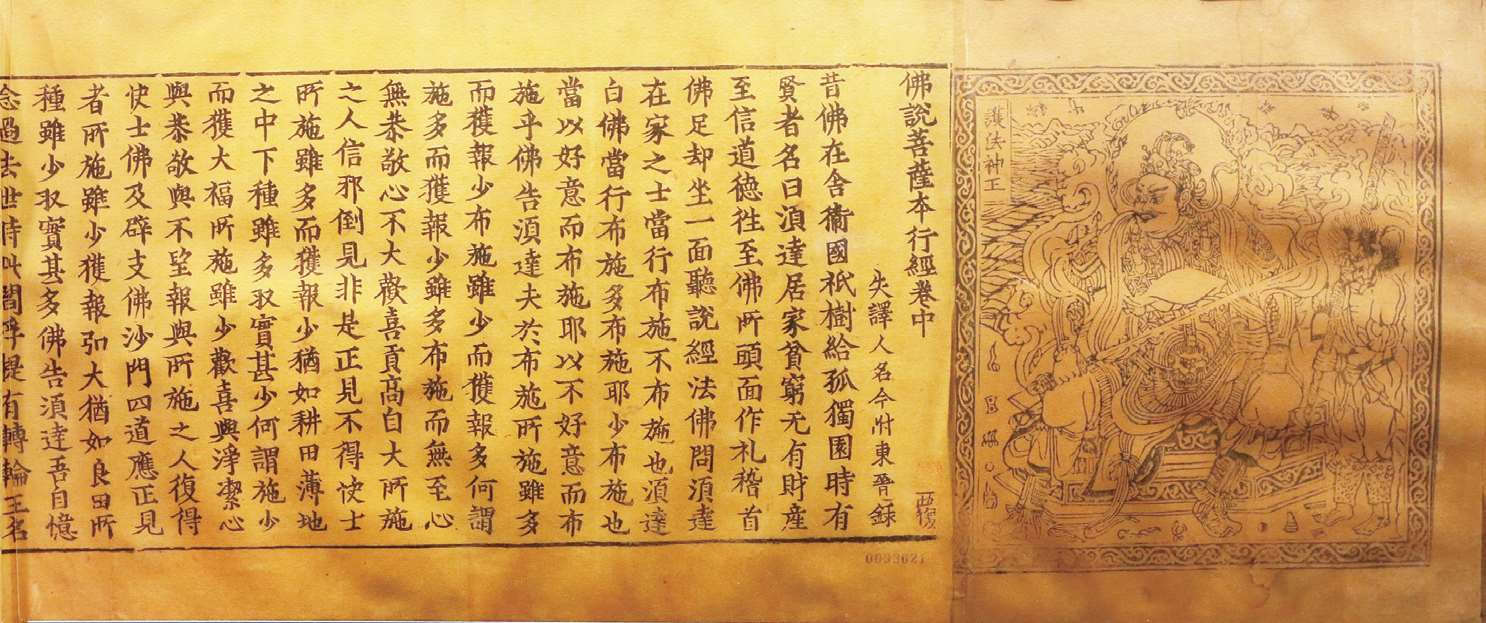 護法神王
佛說菩薩本行經卷中
失譯人名今附東晉錄
昔佛在舍衛國祇樹給孤獨園時有
賢者名曰湏達居家貧窮无有財產
至信道德往至佛所頭面作礼稽首
佛足却坐一面聽說經法佛問湏達
在家之士當行布施不布施也湏達
白佛當行布施多布施耶少布施也
當以好意而布施耶以不好意而布
施乎佛告湏達夫於布施所施雖多
而獲報少布施雖少而獲報多何謂
施多而獲報少雖多布施而無至心
無恭敬心不大歡喜貢高自大所施
之人信邪倒見非是正見不得快士
所施雖多而獲報少猶如耕田薄地
之中下種雖多収實甚少何謂施少
而獲大福所施雖少歡喜與淨潔心
與恭敬與不望報與所施之人復得
快士佛及辟支佛沙門四道應正見
者所施雖少獲報弘大猶如良田所
種雖少収實甚多佛告湏達吾自憶
念過去世時此閻浮提有轉輪王名